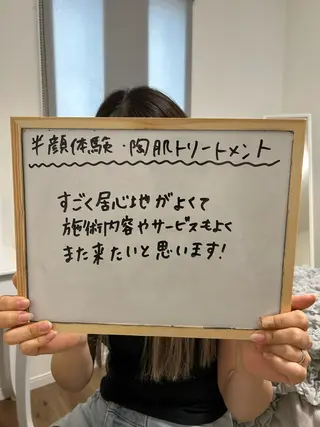 半顔体験・陶肌トリートメント
すごく居心地がよくて
施術内容やサービスもよく
また来たいと思います!